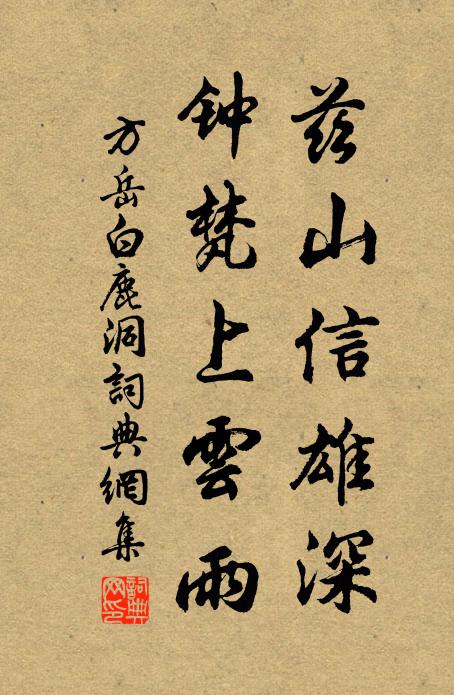 茲山信雄深
钟梵上雲雨
方岳白鹿洞詞典網集
詞典网印